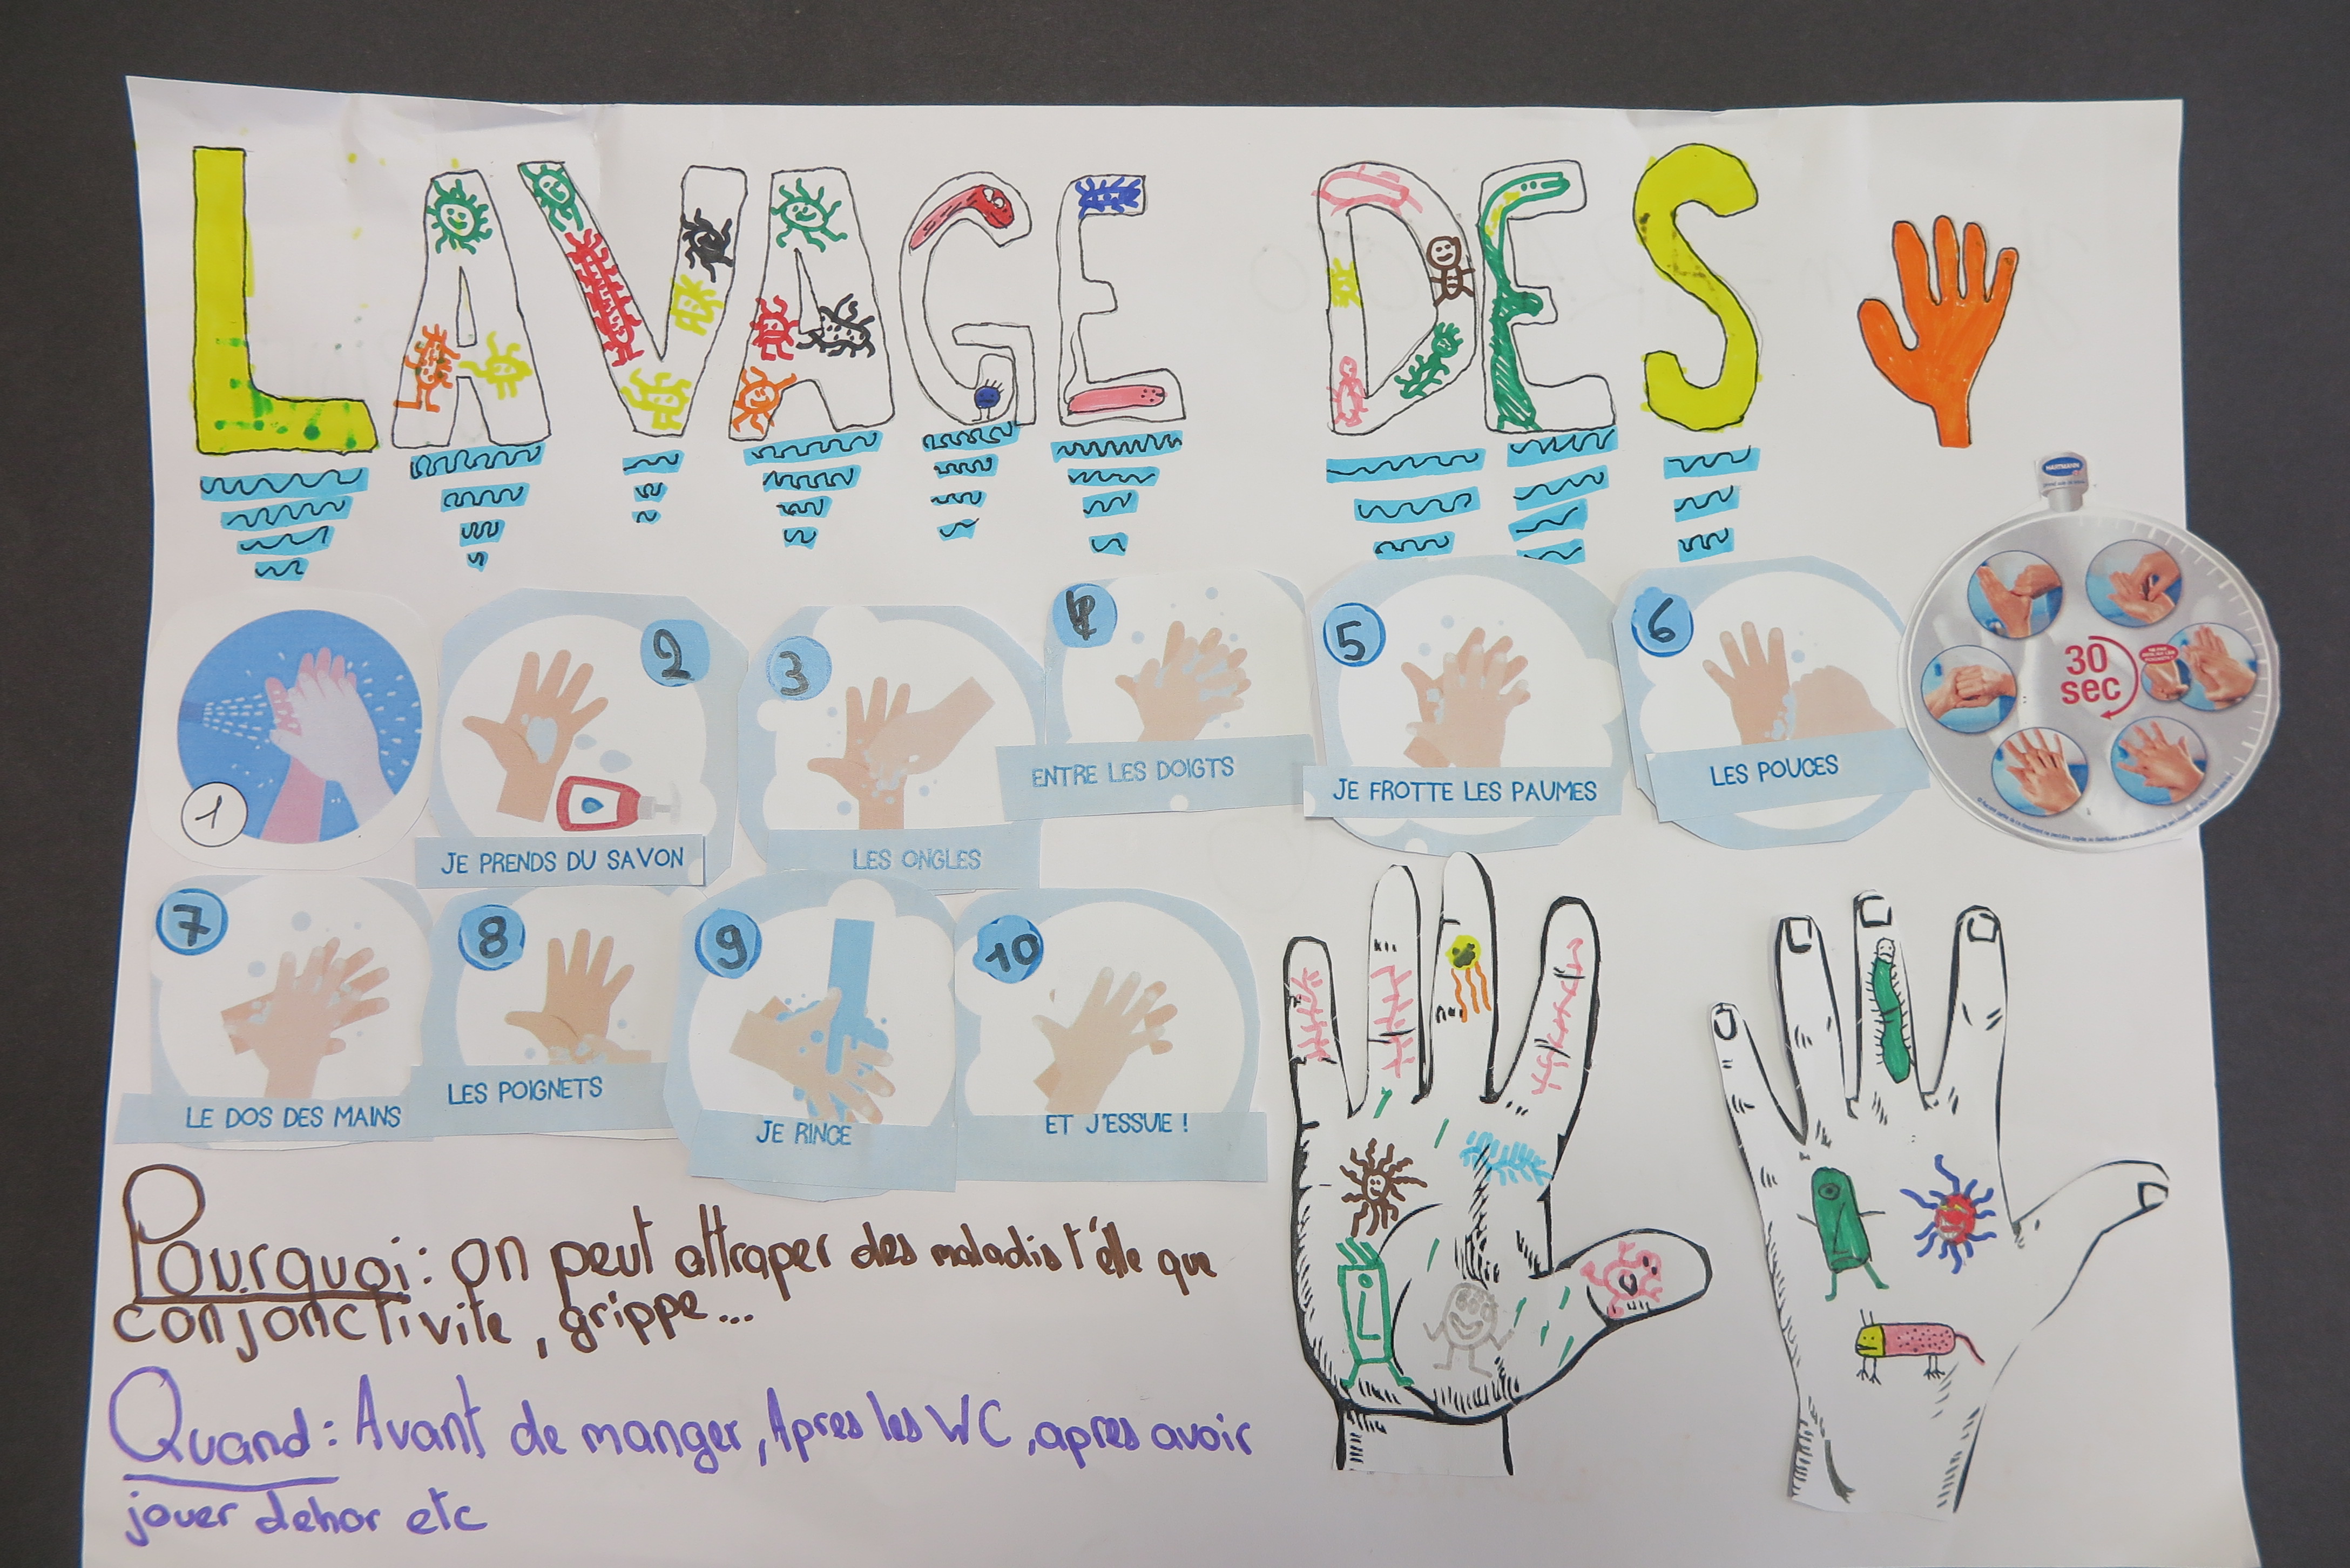 LAVAGE DES
HARTMANN
1
2
JE PRENDS DU SAVON
3
LES ONGLES
4
ENTRE LES DOIGTS
5
JE FROTTE LES PAUMES
6
LES POUCES
30
sec
7
LE DOS DES MAINS
8
LES POIGNETS
9
JE RINCE
10
ET J'ESSUIE !
Pourquoi : on peut attraper des maladis t'elle que
conjonctivite, grippe...
Quand : Avant de manger, Apres les WC, apres avoir
jouer dehor etc